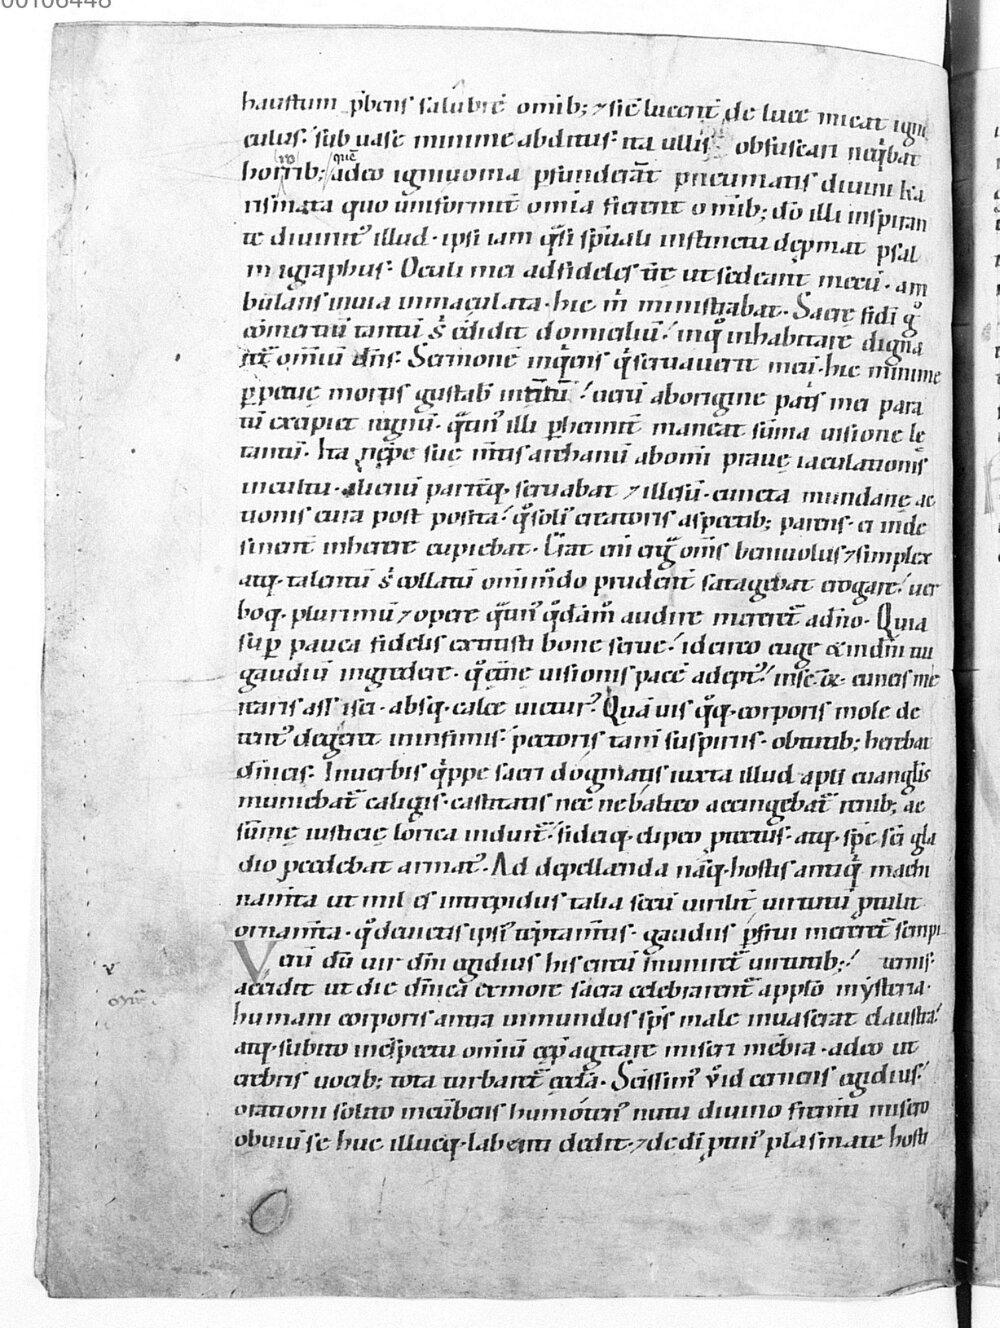 00106448
haustum p̄bens salubrē omib; ⁊ sic̄ lucent̄ de luce micat igni
culus. sub uase minime abditus. ita ullis obfuscari neq̇bat
horrib; adeo igniuoma p̄funderat̄ pneumatis diuini ka
rismata quo uniformit̄ om̄ia fierent om̄ib; dō illi inspiran
te diuinit᷒ illud. ipsi iam q̄si sp̄uali instinctu dep̄mat psal
migraphus. Oculi mei ad fideles tr̄e ut sedeant mecū. am
bulans in uia inmaculata. hic m̄ ministrabat. Sacrę fidi g̊
cōmertiū tantū s̄ c̄didit domiciliū. in q̊ inhabitare digna
ret̄ om̄iū dn̄s. Sermonē inq̇ens q̇ seruauerit meū. hic minime
p̱petuę mortis gustabit̄ ū. uerū ab origine pat̄s mei para
tū excipiet regnū. q̄tin᷒ illi p̱hennit̄ maneat sūma uisione lę
tantū. Ita nēpe suę m̄tis archanū ab om̄i prauę iaculationis
incultu. alienū partēq. seruabat ⁊ illesū. cuncta mundanę ac
tionis cura post posita. q̇ soli creatoris aspectib; parens. ei inde
sinent̄ inherere cupiebat. Erat eni erg̊ om̄s beniuolus ⁊ simplex
atq. talentū s̄ collatū om̄imodo prudent̄ satagebat erogare. uer
boq. plurimū ⁊ opere q̄tin᷒ q̊dam̄ audire mereret̄ a dn̄o. Quia
sup̱ pauca fidelis extitisti bone serue. idcirco euge in dn̄i tui
gaudiū ingredere. uisionis pacē adept᷒. cunctis me
taris absq. calce uictur᷒. Quāuis q̊q. corporis mole de
tent᷒ degeret in infimis. pectoris tam̄ suspiriis. obtutib; herebat
dn̄icis. In uerbis q̇ppe sacri dogmatis iuxta illud apl̄i euangl̄is
muniebat̄ caligis. castitatis nec ne bálteo accingebat̄ renib; ac
sūmę iusticię lórica indut᷒. fideiq. clipeo p̄tectus. atq. spē sc̄i gla
dio p̄cedebat armat᷒. Ad depellanda nāq. hostis antiq̇ machi
nam̄ta ut miles intrepidus talia secū uirilit̄ uirtutū p̄tulit
ornam̄ta. q̊ deuictis ipsi᷒ tēptam̄tis. gaudiis p̱frui mereret̄ sēpi
Verū dū uir dn̄i egidius his cerciū muniret̄ uirtutib; ternis.
accidit ut die dn̄ica ex more sacra celebrarent̄ appsō mẏsteria.
humani corporis antra inmundus sp̄s male inuaserat claustra.
atq. subito inespectu om̄iū cep̄ agitare miseri mēbra. adeo ut
crebris uocib; tota turbaret̄ ęcc̄la. Scissim᷒ v̊ id cernens egidius.
orationi solito incūbens humo nutu diuino fretiū misero
obuiū se huc illucq. labenti dedit. ⁊ de di ptini᷒ plasmate hosti